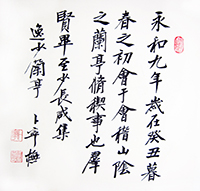 永和九年歲在癸丑暮
春之初會于會稽山陰
之蘭亭脩稧事也羣
賢畢至少長咸集
逸少蘭亭